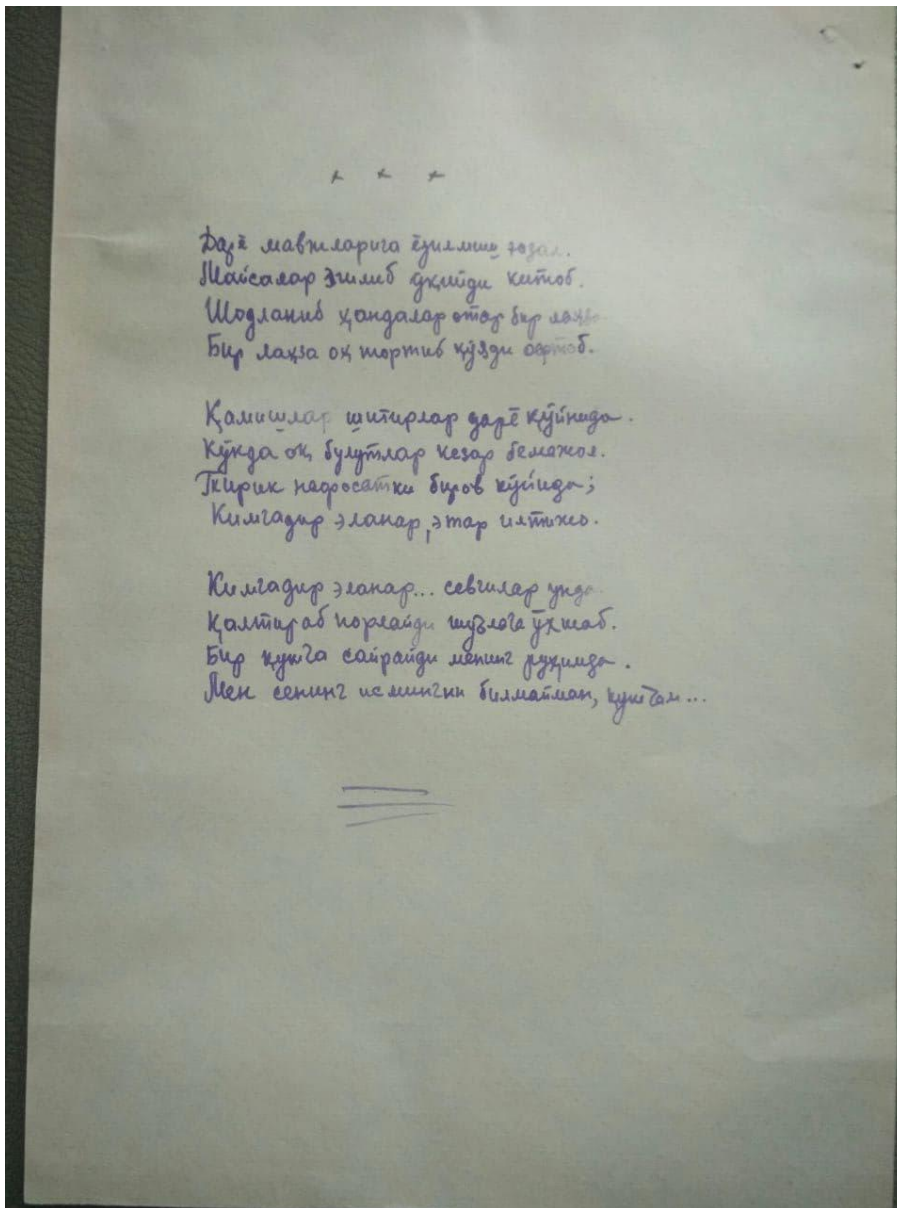 * * *
Дарё мавжларига ёзилмиш ғазал.
Майсалар эгилиб ўқийди китоб.
Шодланиб ҳандалар отар бир лаҳза
Бир лаҳза оқ тортиб қўяди офтоб.
Қамишлар шитирлар дарё қўйнида.
Кўкда оқ булутлар кезар бемажол.
Тирик нафосатки биров кўйида;
Кимгадир эланар, этар илтижо.
Кимгадир эланар... севгилар унда.
Қалтираб порлайди шуълага ўхшаб.
Бир қушча сайрайди менинг руҳимда.
Мен сенинг исмингни билмайман, қушчам...